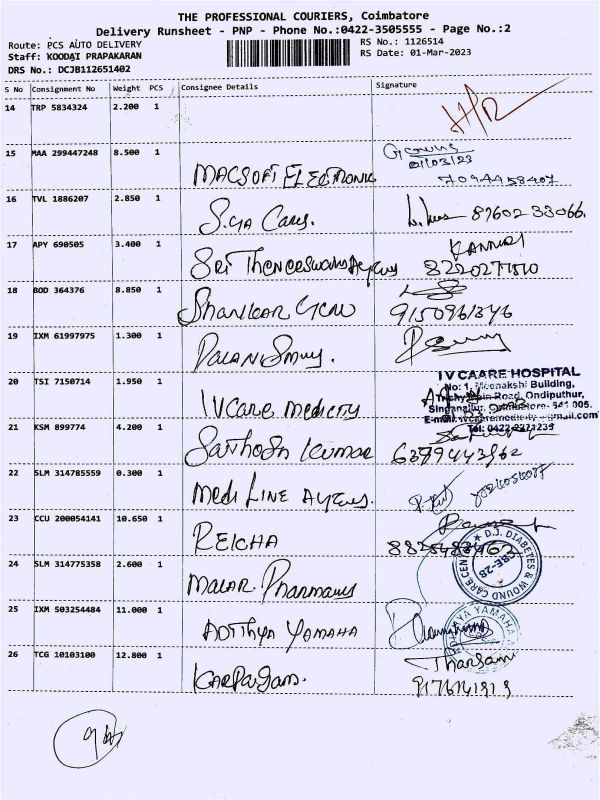 THE PROFESSIONAL COURIERS, Coimbatore
Delivery Runsheet - PNP - Phone No.:0422-3505555 - Page No.:2
Route: PCS AUTO DELIVERY RS No.: 1126514
Staff: KOODAI PRAPAKARAN RS Date: 01-Mar-2023
DRS No.: DCJB112651402
S No Consignment No Weight PCS Consignee Details Signature
14 TRP 5834324 2.200 1
15 MAA 299447248 8.500 1
01/03/23
MACSOFT ELECTRONIC 7094458407
16 TVL 1886207 2.850 1
87602 33066.
17 APY 690505 3.400 1 KANNAN
Sri
18 BOD 364376 8.850 1
Shankar 9150961346
19 IXM 61997975 1.300 1
20 TSI 7150714 1.950 1 IV CAARE HOSPITAL
No: 1, Meenakshi Building,
Trichy Main Road, Ondiputhur,
Singanallur, Coimbatore- 641 005.
IVCare medicity
Tel: 0422-2271235
21 KSM 899774 4.200 1
Santhosh Kumar 6379443962
22 SLM 314785559 0.300 1
Medi Line
23 CCU 200054141 10.650 1
REICHA
24 SLM 314775358 2.600 1 D.J. DIABETES & WOUND CARE CEN
CBE-28
Malar Pharmacy
25 IXM 503254484 11.000 1
ADITHYA YAMAHA
26 TCG 10103100 12.800 1 Tharsani
Karpagam. 9176141919